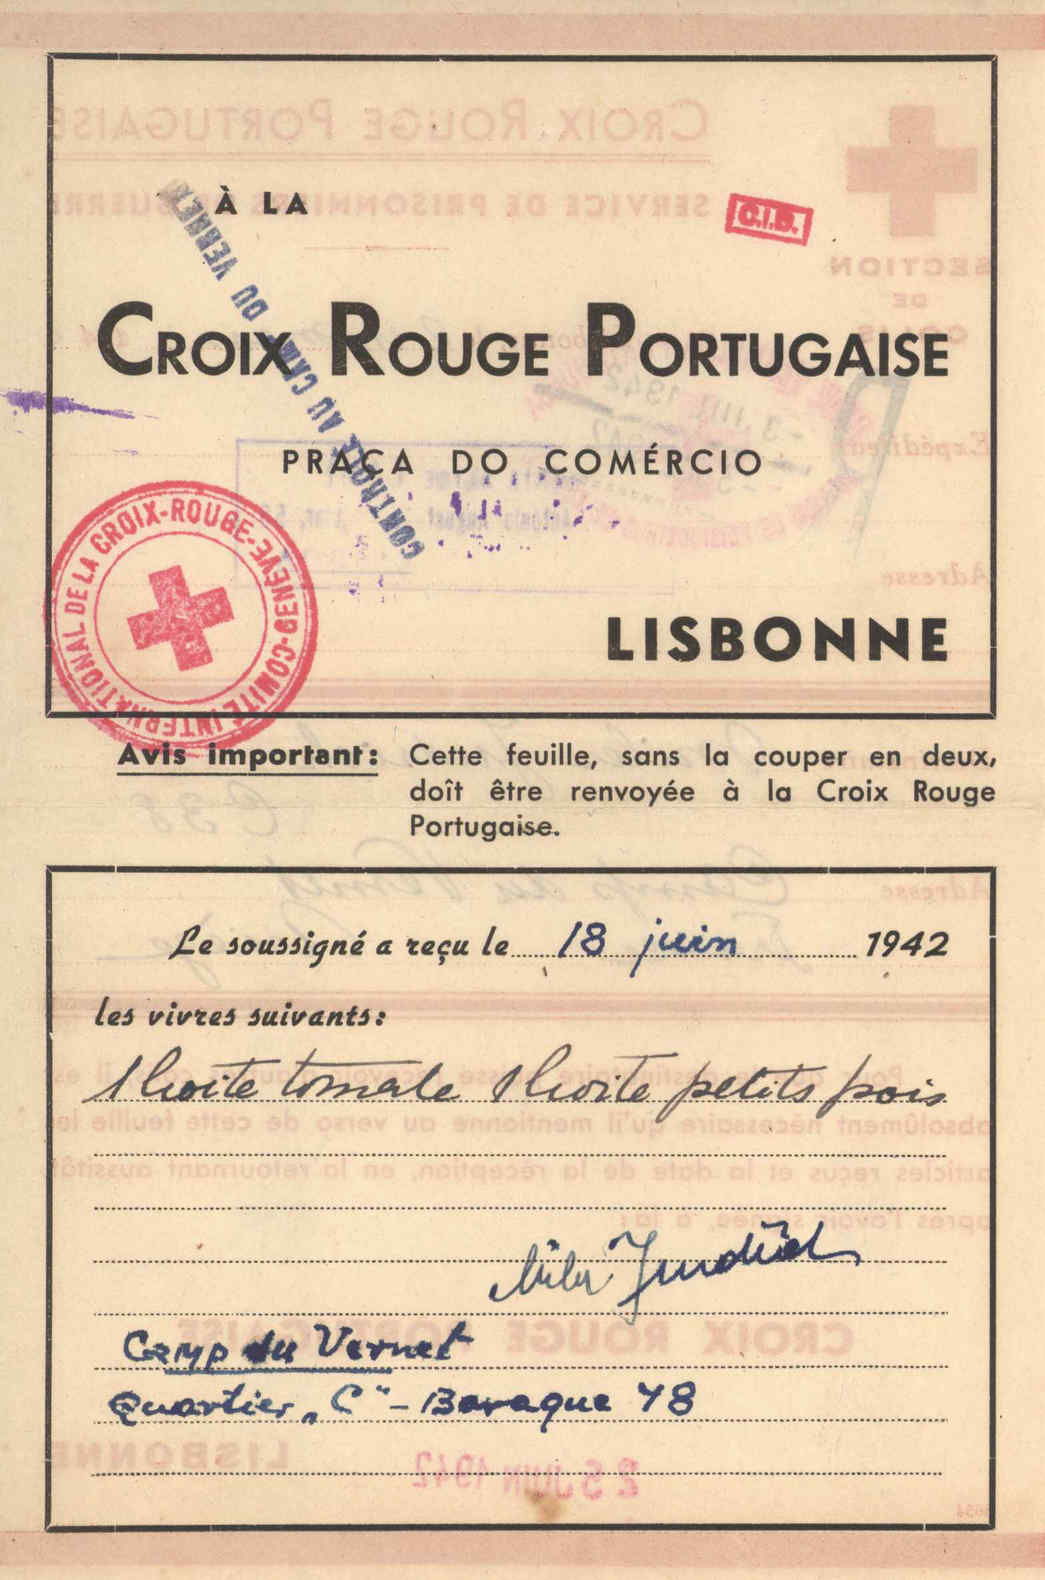 À LA
C.I.D.
CROIX ROUGE PORTUGAISE
CONTROLE AU CAMP DU VERNET
PRAÇA DO COMÉRCIO
COMITÉ INTERNATIONAL DE LA CROIX-ROUGE-GENÈVE-
LISBONNE
Avis important: Cette feuille, sans la couper en deux,
doît être renvoyée à la Croix Rouge
Portugaise.
Le soussigné a reçu le 18 juin 1942
les vivres suivants:
1 boite tomate 1 boite petits pois
Camp du Vernet
Quartier „C" - Baraque 48
25 JUIN 1942